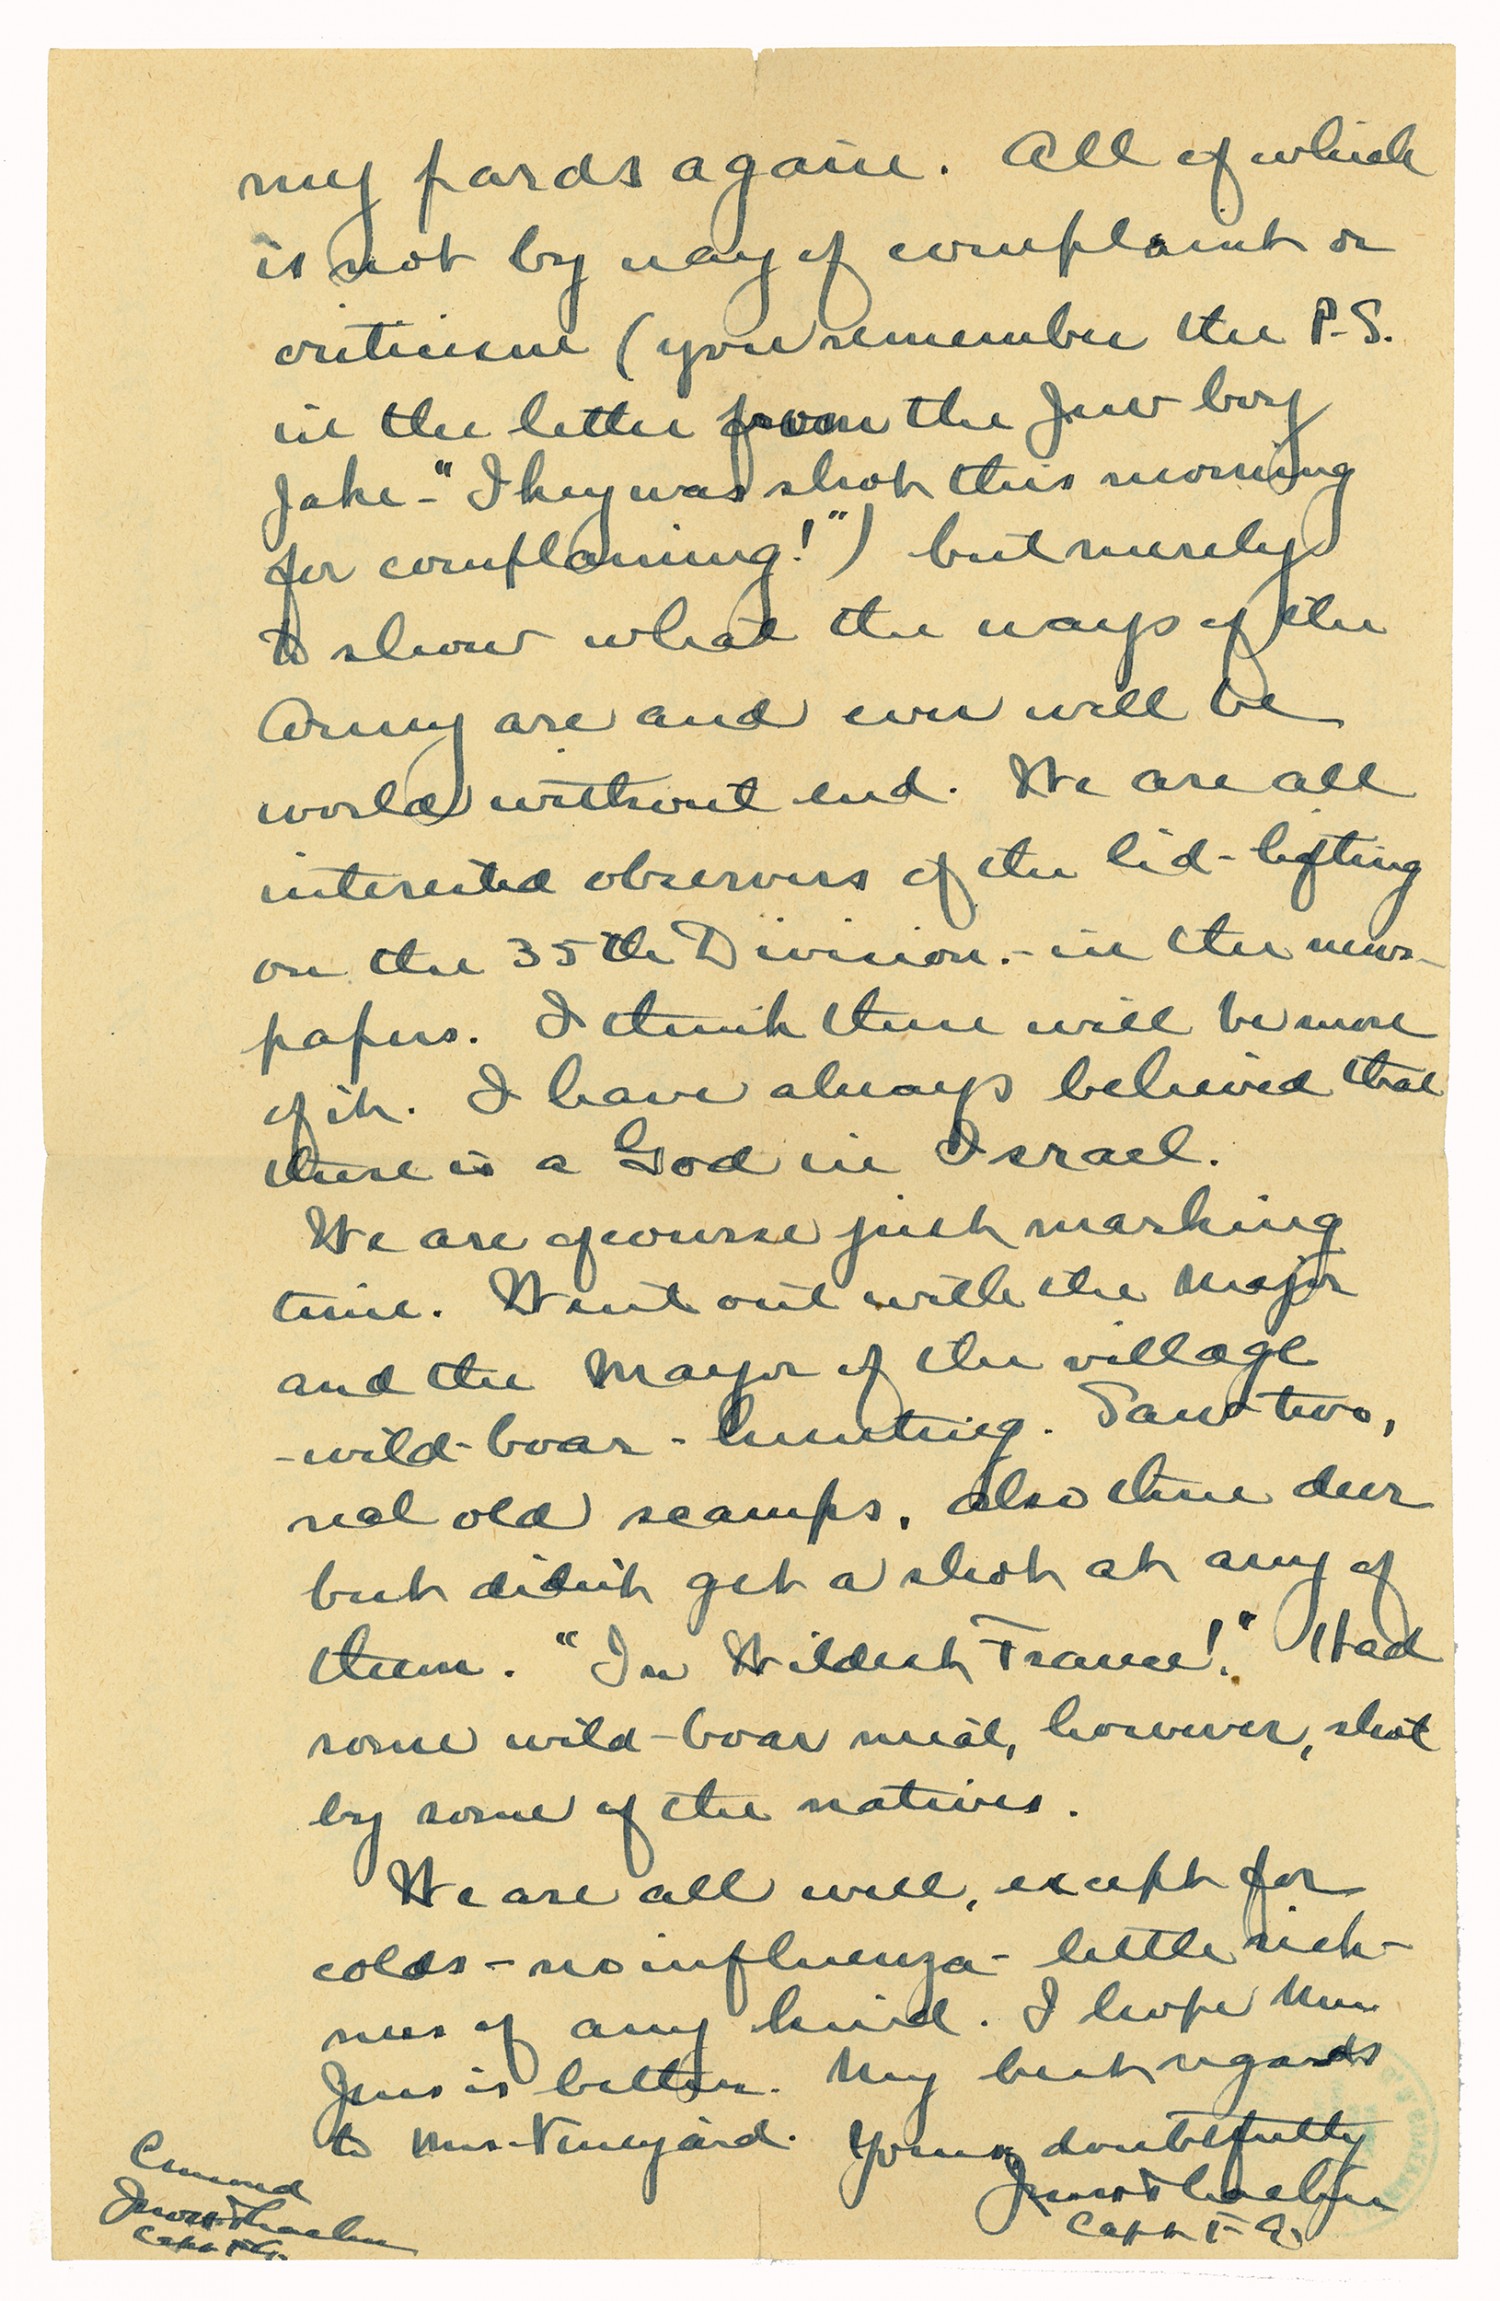 my pards again. All of which
is not by way of complaint or
criticism (you remember the P.S.
in the letter from the Jew boy
Jake-"Ikey was shot this morning
for complaning!") but merely
to show what the ways of the
Army are and ever will be
world without end. We are all
interested observers of the lid-lifting
on the 35th Division.-in the news-
papers. I think there will be more
of it. I have always believed that
there is a God in Israel.
We are of course just marking
time. Went out with the Major
and the Mayor of the village
-wild-boar-hunting. Saw two,
real old scamps, also three deer
but didn't get a shot at any of
them. "In Wildest France!" Had
some wild-boar meat, however, shot
by some of the natives.
We are all well, except for
colds-no influenza-little sick-
ness of any kind. I hope
is better. My best regards
to Mrs. Vineyard. Yours doubtfully
Capt F.A.
Censored
Capt F.A.